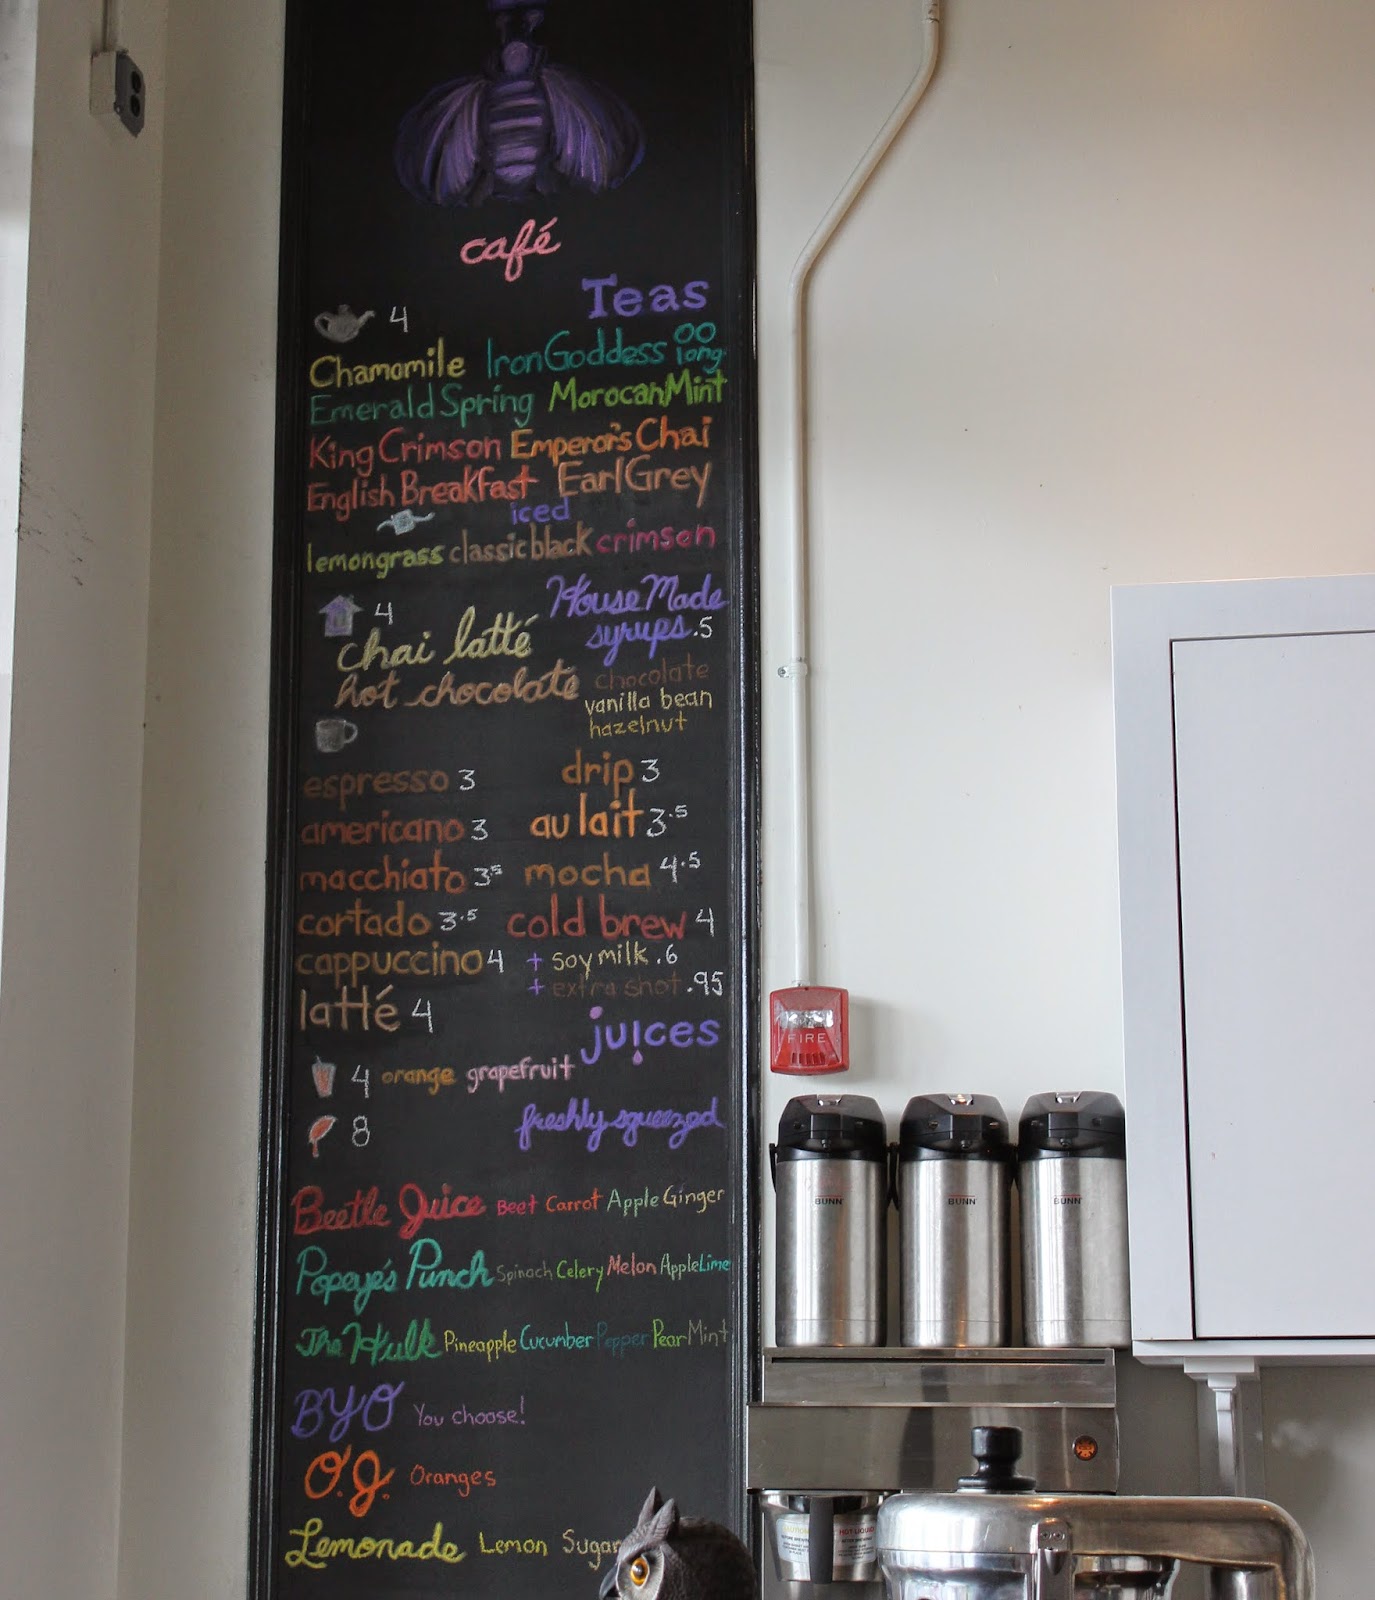 café
Teas
4
Chamomile Iron Goddess oolong
Emerald Spring Morocan Mint
King Crimson Emperor's Chai
English Breakfast Earl Grey
iced
lemongrass classic black crimson
4 House Made
chai latté syrups .5
hot chocolate chocolate
vanilla bean
hazelnut
espresso 3 drip 3
americano 3 au lait 3.5
macchiato 3.5 mocha 4.5
cortado 3.5 cold brew 4
cappuccino 4 + soy milk .6
latté 4 + extra shot .95
juices
4 orange grapefruit
8 freshly squeezed
Beetle Juice Beet Carrot Apple Ginger
Popeye's Punch Spinach Celery Melon Apple Lime
The Hulk Pineapple Cucumber Pepper Pear Mint
BYO You choose!
O.J. Oranges
Lemonade Lemon Sugar
FIRE
BUNN BUNN BUNN
CAUTION HOT LIQUID